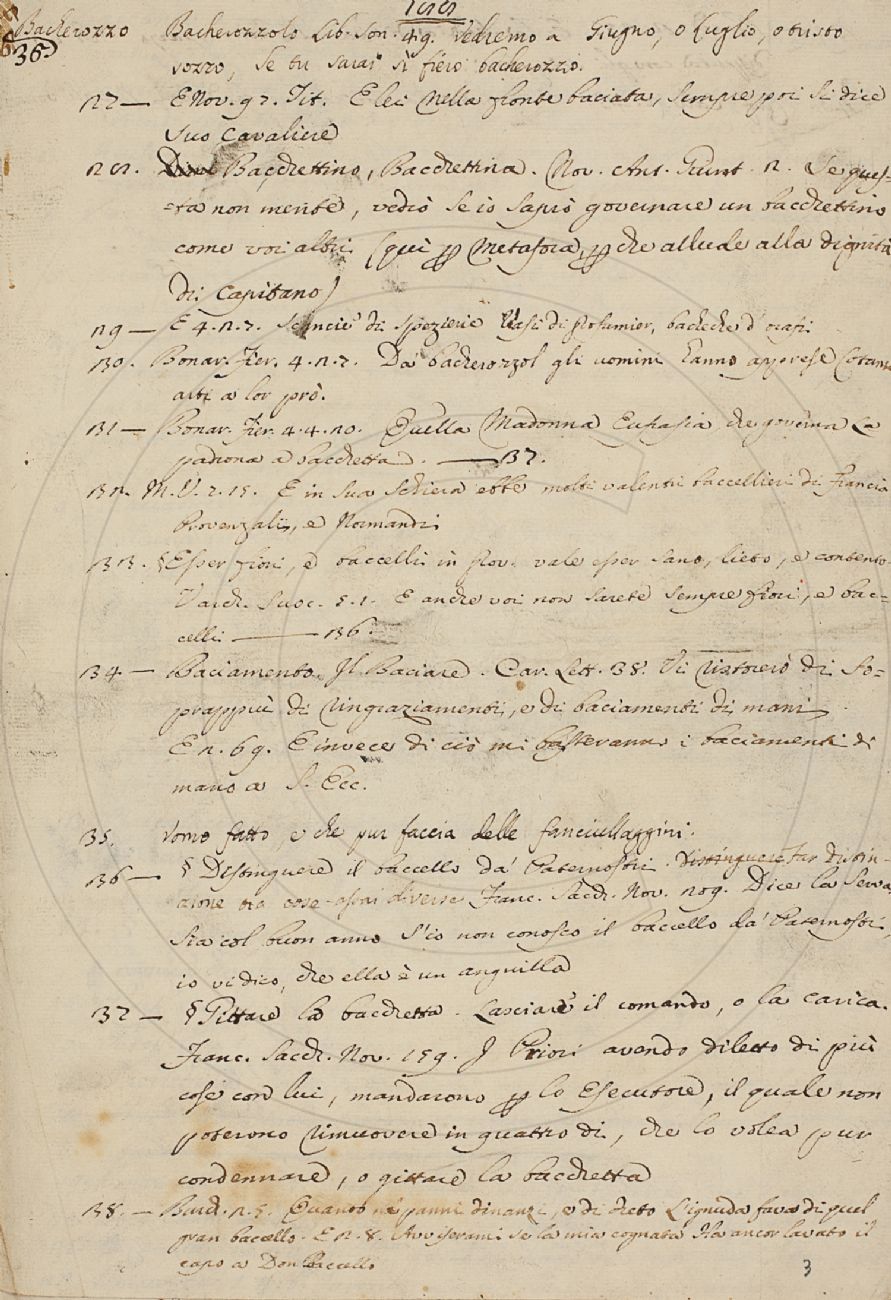 Bacherozzo Bacherozzolo Lib. Son. 49. Vedremo a Giugno, o Luglio, o tristo
36 sozzo, Se tu sarai sì fiero bacherozzo.
27 — E Nov. 97. Tit. E lei nella fronte baciata, sempre poi si dice
suo Cavaliere
Bacchettino, Bacchettina. Nov. Ant. 2. Se ques-
ta non mente, vedrò se io saprò governare un bacchettino
come voi altri (qui per Metafora, perche allude alla dignità
di Capitano)
29 — E 4. 2. 7. di spezierie Vasi di profumier, bacheche d' orafi
130. Bonar. Fier. 4. 2. 7. Da' bacherozzol gli uomini hanno apprese Cotant'
arti a lor prò.
131 — Bonar. Fier. 4. 4. 20. Quella Madonna Eufrasia che governa La
padrona a bacchetta. — 137.
132. M. V. 2. 15. E in sua schiera ebbe molti valenti baccellieri di Francia
Provenzali, e Normandi
133. § Esser fiori, e baccelli in prov. vale esser sano, lieto, e contento
Varch. Suoc. 5. 1. E anche voi non sarete sempre fiori, e bac-
celli — 136.
134 — Baciamento. Il Baciare. Car. Lett. 38. Vi ristorerò di So-
prappiù di ringraziamenti, e di baciamenti di mani
E 2. 69. E invece di ciò mi basteranno i baciamenti di
mano a S. Ecc.
35. Uomo fatto, e che pur faccia delle fanciullaggini.
136 — § Distinguere il baccello da' Paternostri. Distinguere Far distin-
zione tra cose assai diverse Franc. Sacch. Nov. 209. Dice la Serva
Sia col buon anno S'io non conosco il baccello da' Paternostri,
io vi dico, che ella è un anguilla
37 — § Gittare la bacchetta. Lasciare il comando, o la carica.
Franc. Sacch. Nov. 159. I Priori avendo diletto di più
cose con lui, mandarono per lo Esecutore, il quale non
poterono rimuovere in quattro dì, che lo volea pur
condennare, o gittare la bacchetta
138. — Burch. 2. 5. Quando ne' panni dinanzi, e di dreto L'ignuda fava di quel
gran baccello. E 2. 8. Avviserami se la mia cognata Ha ancor lavato il
capo a Don Baccello
3